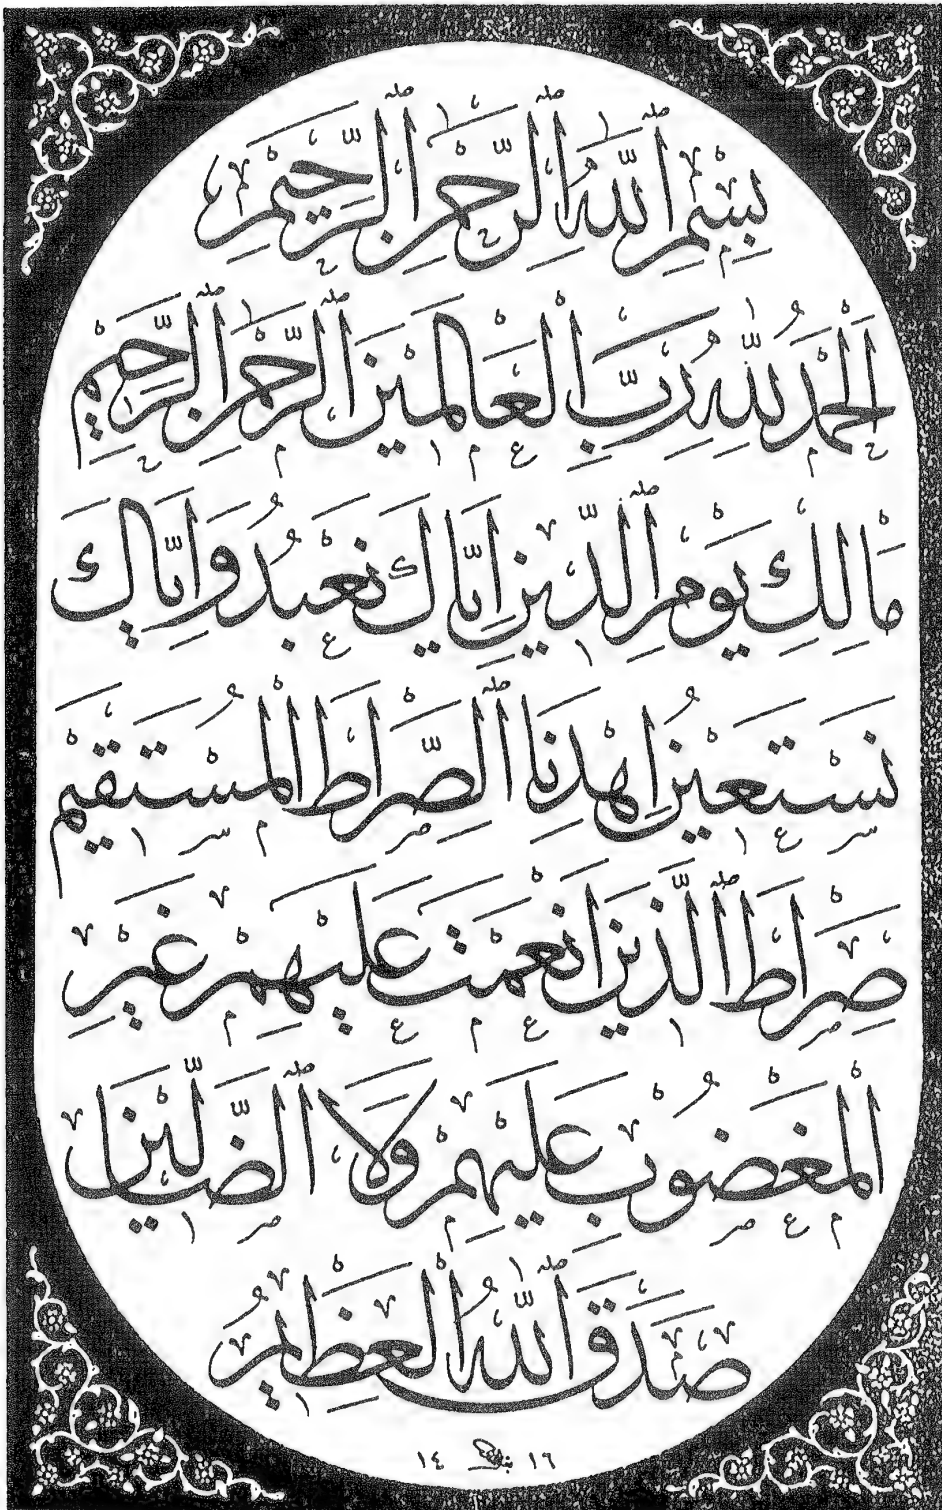 بِسْمِ اللَّهِ الرَّحْمَٰنِ الرَّحِيمِ
اَلْحَمْدُ لِلَّهِ رَبِّ الْعَالَمِينَ الرَّحْمَٰنِ الرَّحِيمْ
مَالِكِ يَوْمِ الدِّينِ اِيَّاكَ نَعْبُدُ وَاِيَّاكَ
نَسْتَعِينُ اِهْدِنَا الصِّرَاطَ الْمُسْتَقِيمْ
صِرَاطَ الَّذِينَ اَنْعَمْتَ عَلَيْهِمْ غَيْرِ
الْمَغْضُوبِ عَلَيْهِمْ وَلَا الضَّالِّينَ
صَدَقَ اللَّهُ الْعَظِيمُ
١٤ ١٦